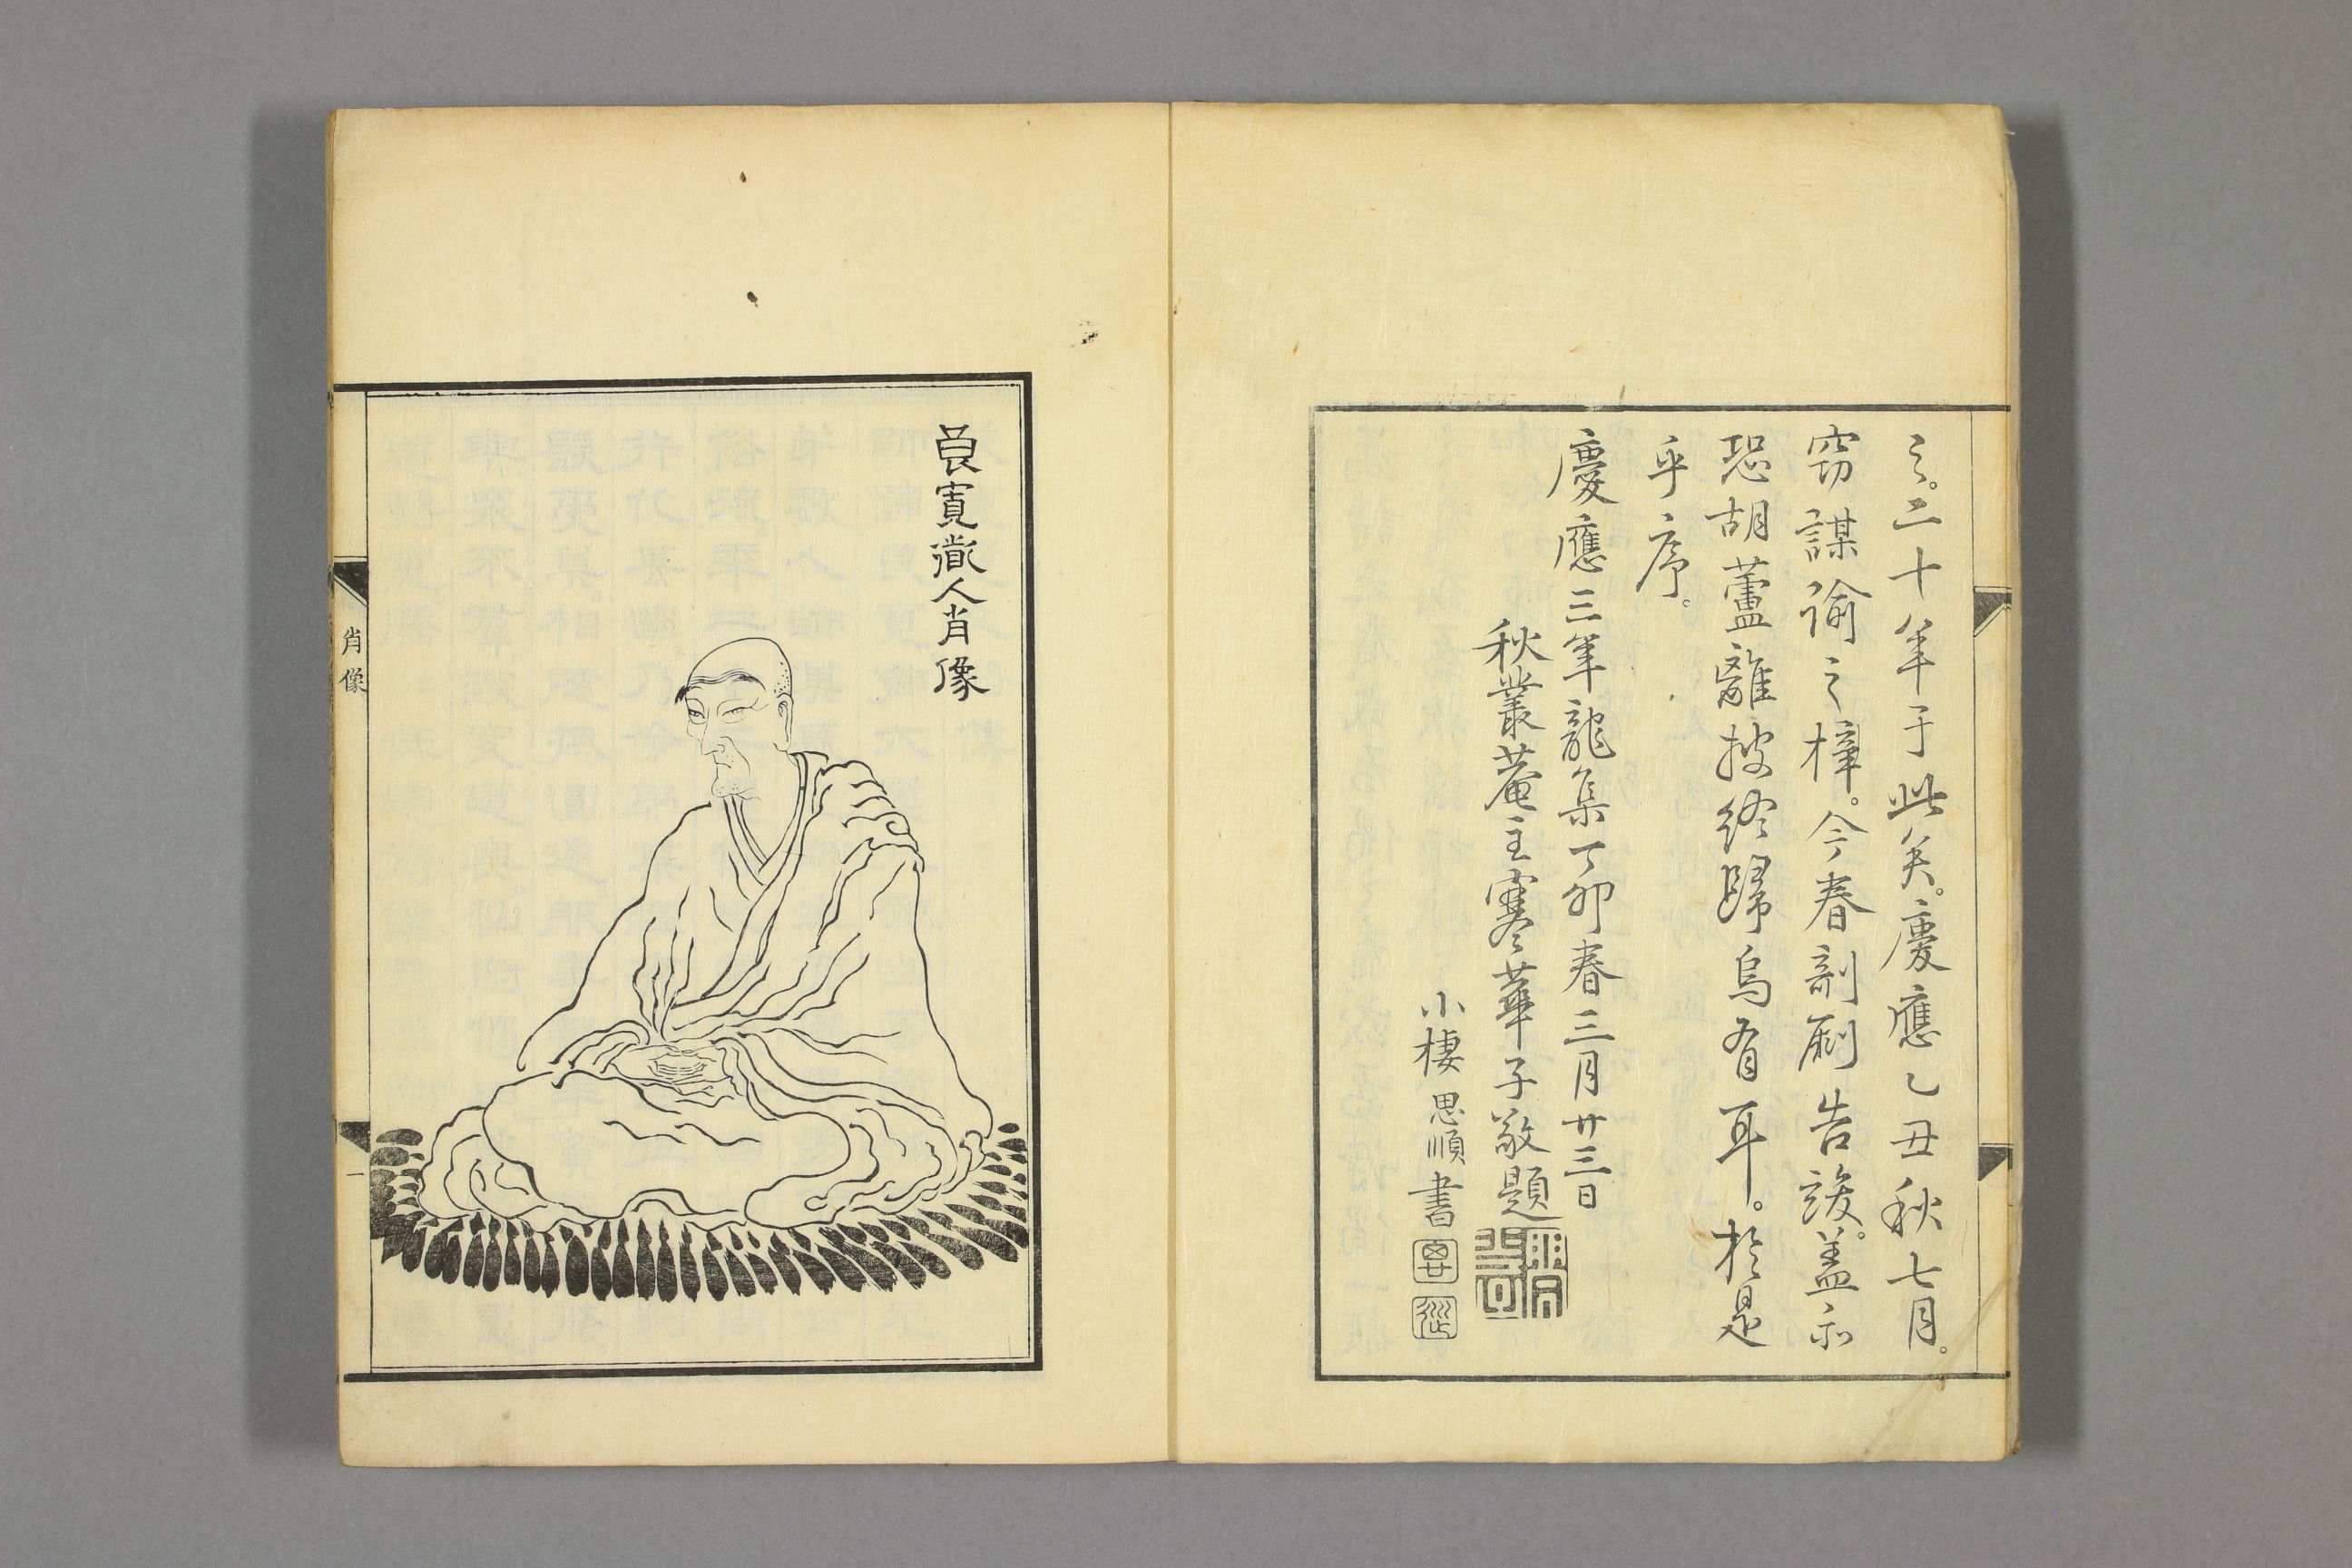 之。二十年于此矣。慶應乙丑秋七月。
窃謀諭之梓。今春剞劂告竣。盖示
恐胡蘆離披終歸烏有耳。於是
乎序。
慶應三年龍集丁卯春三月廿三日
秋叢菴主寒華子敬題
小棲思順書
良寛道人肖像
肖像
一